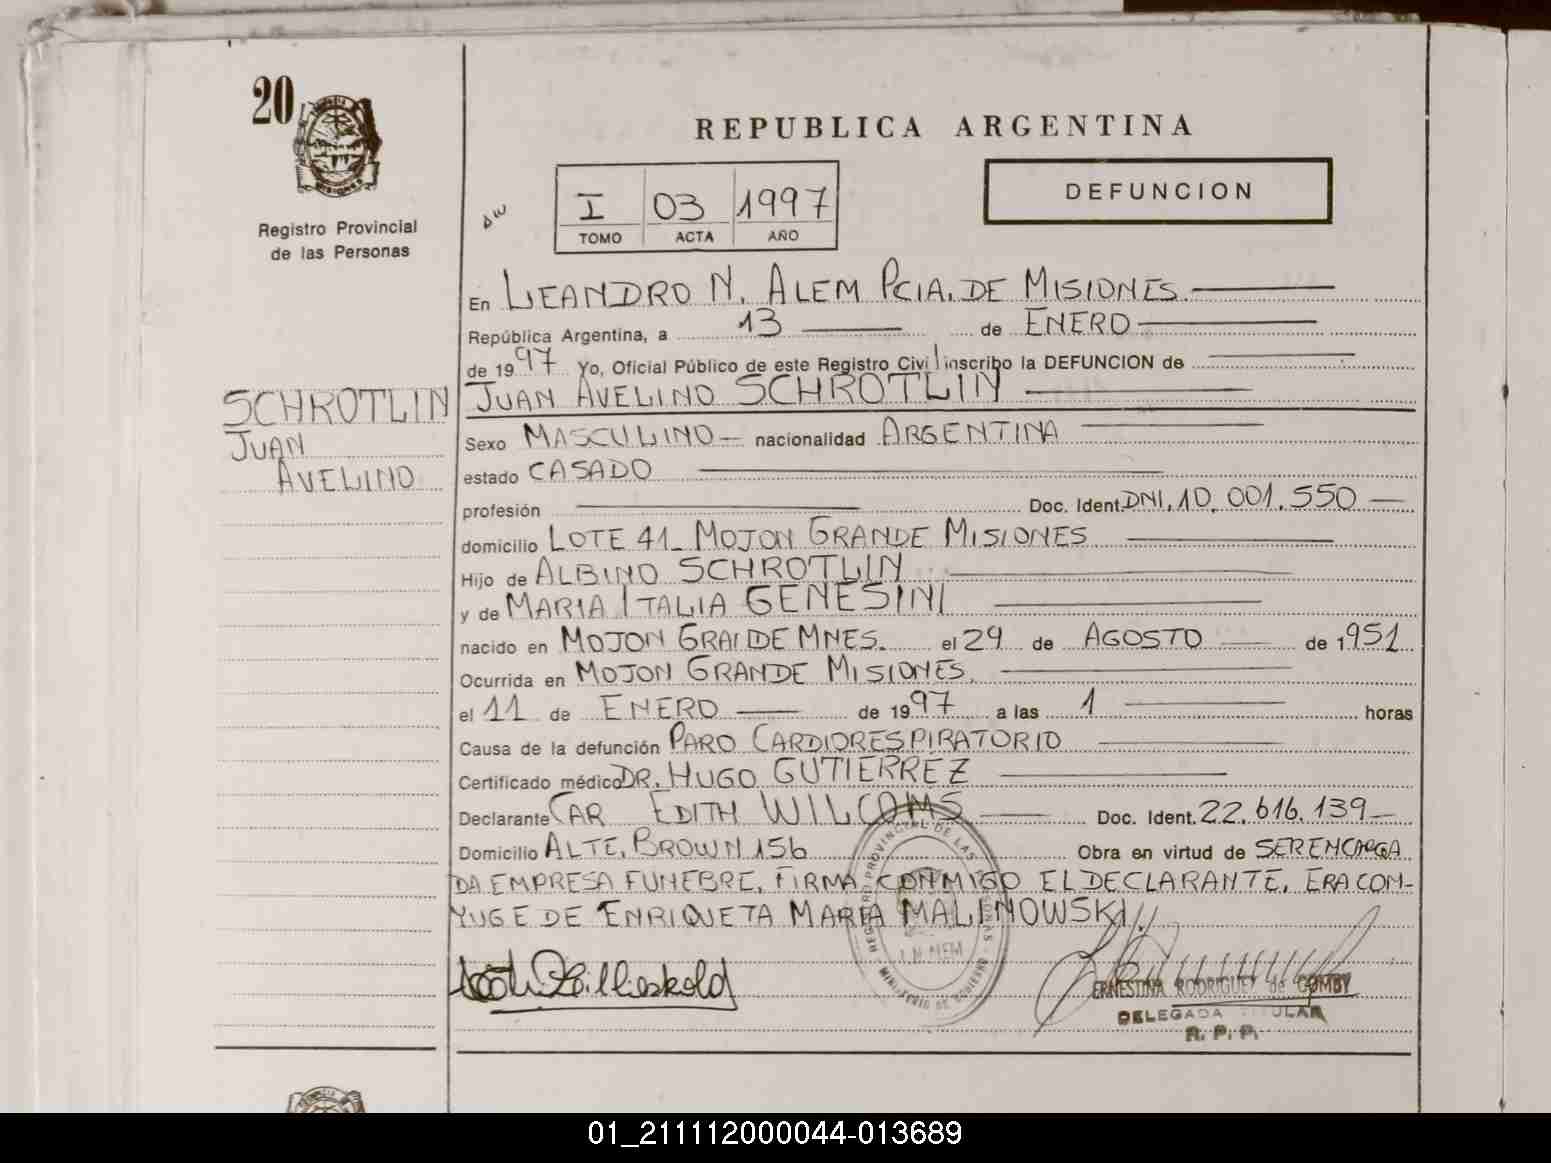 20
REPUBLICA ARGENTINA
DEFUNCION
I 03 1997
TOMO ACTA AÑO
Registro Provincial
de las Personas
En LEANDRO N. ALEM PCIA. DE MISIONES
República Argentina, a 13 de ENERO
de 1997 Yo, Oficial Público de este Registro Civil inscribo la DEFUNCION de
SCHROTLIN
JUAN
AVELINO
JUAN AVELINO SCHROTLIN
Sexo MASCULINO nacionalidad ARGENTINA
estado CASADO
profesión Doc. Ident. DNI. 10.001.550
domicilio LOTE 41_ MOJON GRANDE MISIONES
Hijo de ALBINO SCHROTLIN
y de MARIA ITALIA GENESINI
nacido en MOJON GRANDE MNES. el 29 de AGOSTO de 1951
Ocurrida en MOJON GRANDE MISIONES.
el 11 de ENERO de 1997 a las 1 horas
Causa de la defunción PARO CARDIORESPIRATORIO
Certificado médico DR. HUGO GUTIERREZ
Declarante CAR EDITH WILCOMS Doc. Ident. 22.616.139
Domicilio ALTE. BROWN 156 Obra en virtud de SER ENCARGA
DA EMPRESA FUNEBRE. FIRMA CONMIGO EL DECLARANTE. ERA CON-
YUGE DE ENRIQUETA MARIA MALINOWSKI
REGISTRO PROVINCIAL DE LAS PERSONAS - MINISTERIO DE GOBIERNO
L.N. ALEM
ERNESTINA RODRIGUEZ de COMBY
DELEGADA TITULAR
R. P. P.
01_211112000044-013689